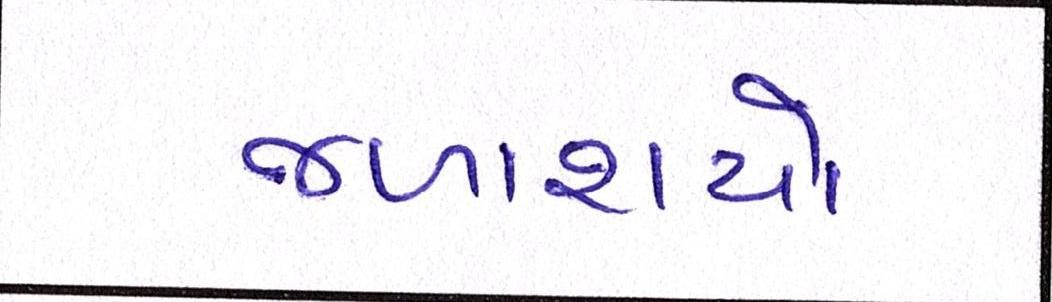 જળાશયો